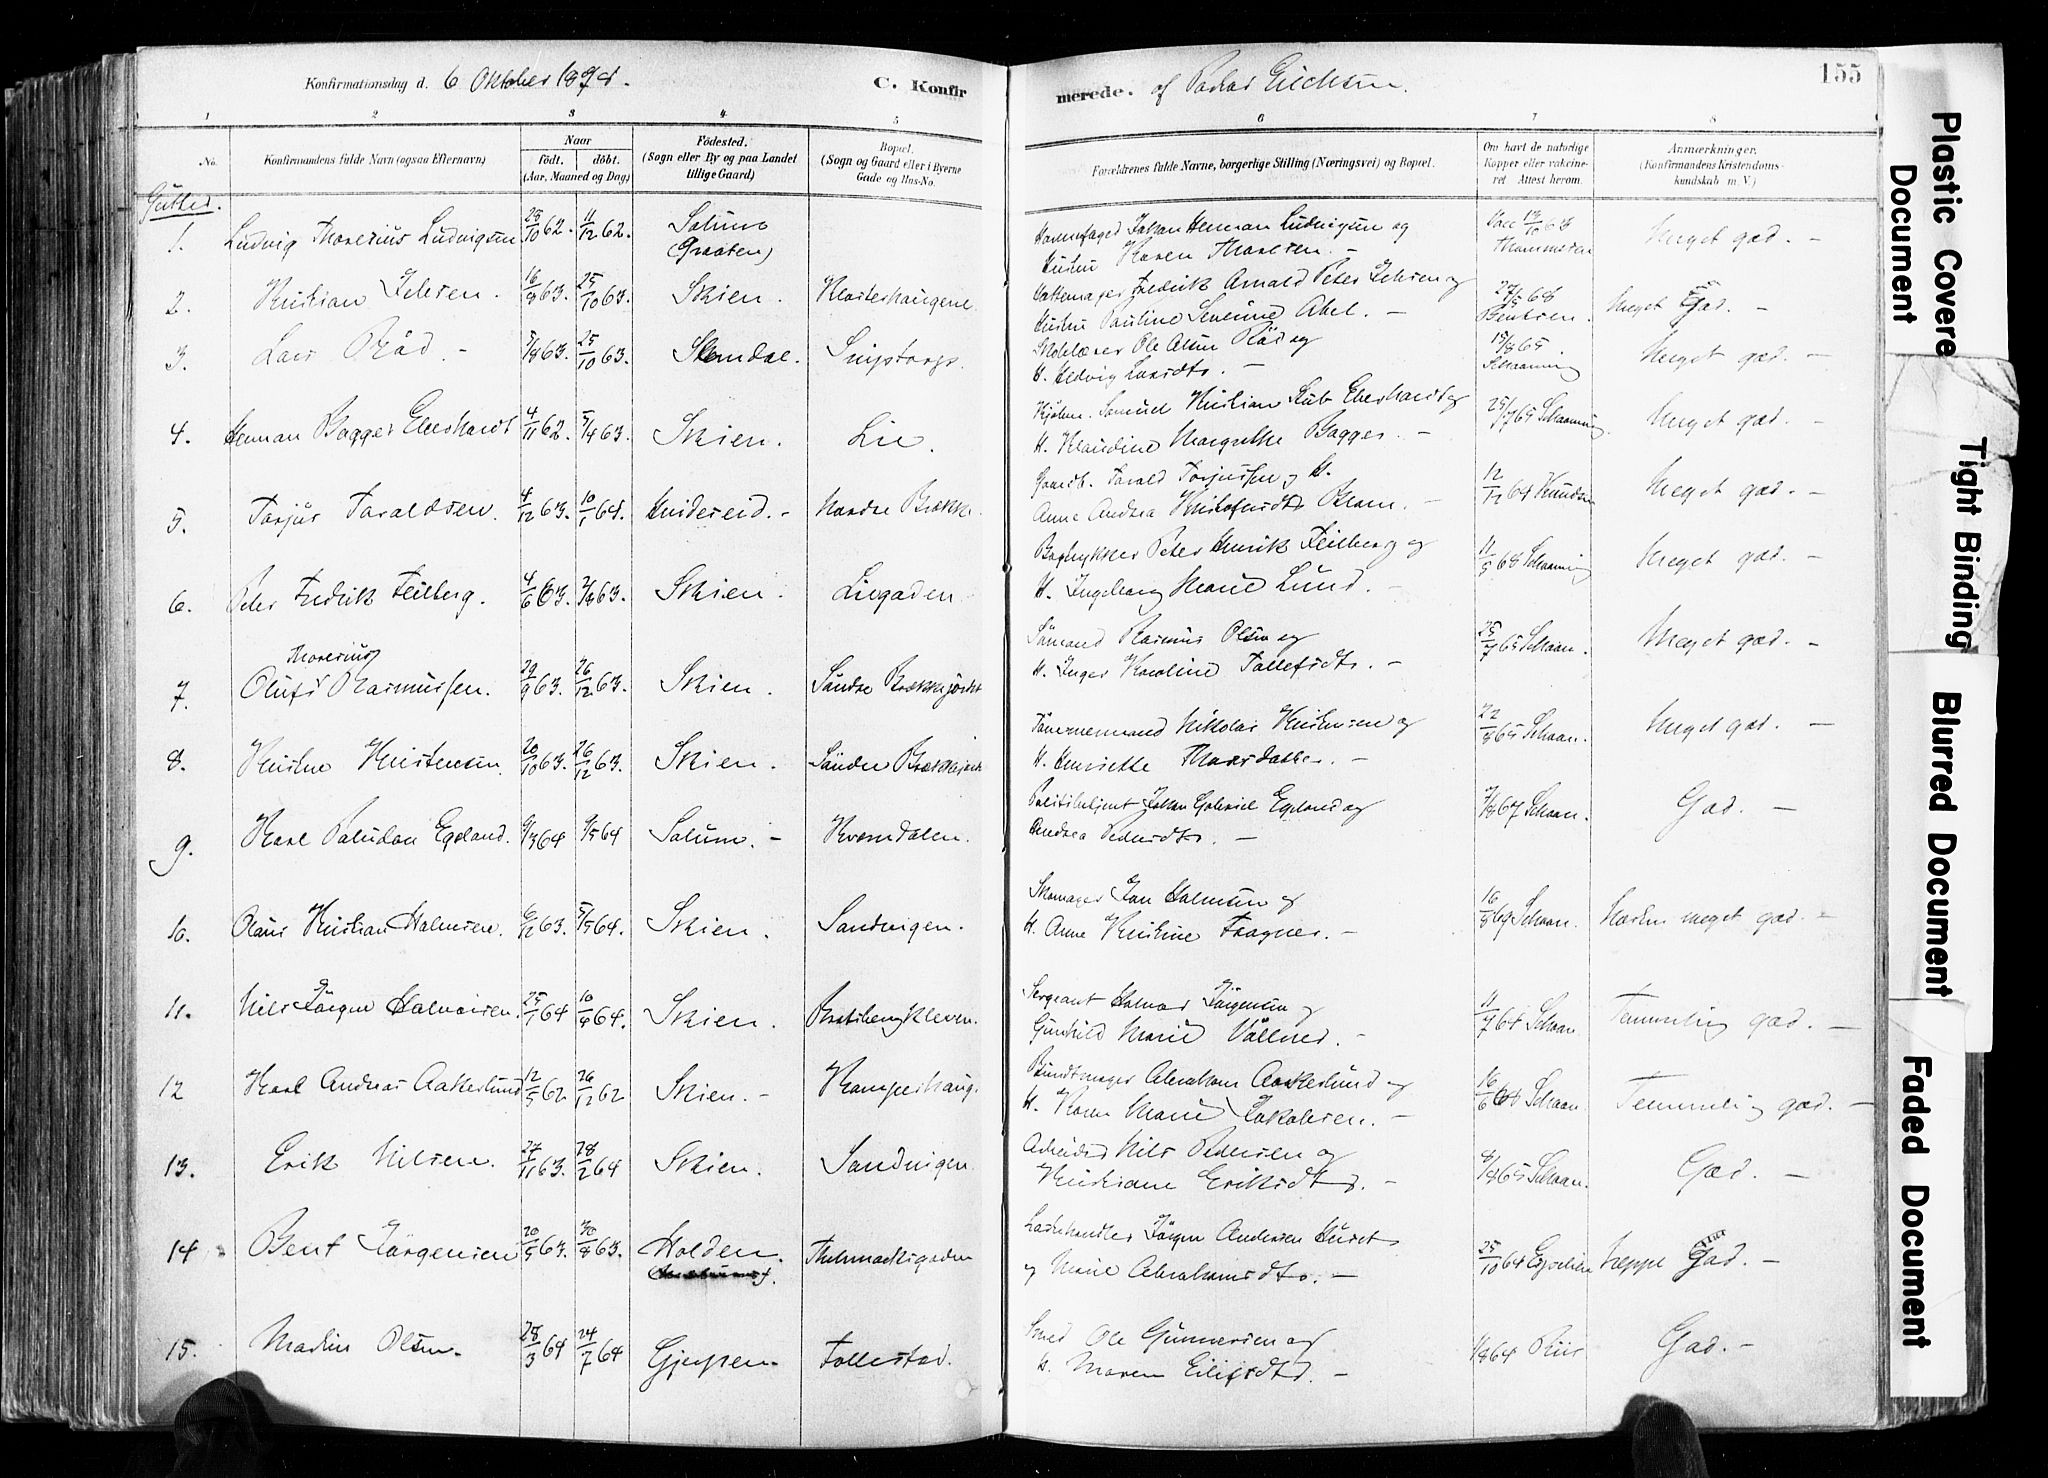 Konfirmationsdag d. 6 Oktober 1878. C. Konfirmerede. af Erichsen. 155
1 2 3 4 5 6 7 8
No. Konfirmandens fulde Navn (ogsaa Efternavn) Naar født. døbt. (Aar, Maaned og Dag) Fødested. (Sogn eller By og paa Landet tillige Gaard) Bopæl. (Sogn og Gaard eller i Byerne Gade og Hus-No. Forældrenes fulde Navne, borgerlige Stilling (Næringsvei) og Bopæl. Om havt de naturlige Kopper eller vakcineret Attest herom. Anmærkninger. (Konfirmandens Kristendomskundskab m. V.)
Gutter.
1. Ludvig Thorerius Ludvigsen 28/10 62. 11/12 62. Solum (Graaten) Johan Herman Ludvigsen og Hustru Karen Meget god. -
2. Kristian 16/8 63. 25/10 63. Skien. Klosterhaugene Hattemager Fredrik Arnold Peter og Hustru Pauline Severine Abel. - 68 Bentsen. Meget God. -
3. Lars Röd. - 63. 25/10 63. Slemdal. Snipetorp. Skolelærer Ole Olsen Röd og H. Hedvig Larsdtr. - 65 Schaanning Meget god. -
4. Herman Bagger Eberhardt 4/11 62. 5/4 63. Skien. Lie. Samuel Kristian Stub Eberhardt og H. Klaudine Margrethe Bagger. - 25/7 65 Schaanning Meget god. -
5. Torjus Taraldsen. 4/12 63. 10/1 64. Hvideseid. - Nordre Brække. Gaardb. Tarald Torjussen og H. Anne Andrea - 12/12 64 Knudsen Meget god. -
6. Peter Fredrik Feilberg. 4/6 63. 2/8 63. Skien. Liegaden. Bogtrykker Peter Henrik Feilberg og H. Ingeborg Marie Lund. - 11/5 68 Schaanning Meget god. -
7. Oluf Thorerius Rasmussen. 29/9 63. 26/12 63. Skien. Söndre Brækkejordet Sömand Rasmus Olsen og H. Inger Karoline Tollefsdtr. - 25/7 65 Schaan. Meget god. -
8. Kristen Kristensen 20/10 63. 26/12 63. Skien. Söndre Nikolai Kristensen og H. Henriette - 22/8 65 Schaan. Meget god. -
9. Karl Paludan Egeland. 9/3 64 64 Solum. - Kverndalen. Politibetjent Johan Gabriel Egeland og Andrea Pedersdtr. - 67 Schaan. God. -
10. Olaus Kristian Halvorsen. 63. 5/5 64. Skien. Sandvigen. Skomager Jon Halvorsen og H. Anne Kristine - 16/8 69 Schaan. Næsten meget god. -
11. Nils Jörgen Halvorsen. 25/1 64 10/4 64. Skien. Bratsbergkleven. Sergeant Halvor Jörgensen og Gunhild Marie - 11/7 64 Schaan Temmelig god. -
12 Karl Andreas Aakerlund 12/5 62 26/12 62 Skien. - Kamperhaug. Bundtmager Abraham Aakerlund og H. Karen Marie Jakobsen. - 16/6 68 Schaan Temmelig god. -
13. Erik Nilsen. 27/11 63. 28/2 64 Skien. Sandvigen. Arbeider Nils Pedersen og Kristiane Eriksdtr. - 65 Schaan. God. -
14 Bent Jörgensen 20/5 63. 30/8 63. Holden Thelemarksgaden Jörgen Andersen og Marie Abrahamsdtr. - 25/10 64 Neppe God. -
15. Martin Olsen. 28/3 64 24/7 64 Gjerpen. Follestad. Smed Ole Gunnersen og H. Maren Eilifsdtr. - 64 Riis God. -
Plastic Covere Document
Tight Binding
Blurred Document
Faded Document